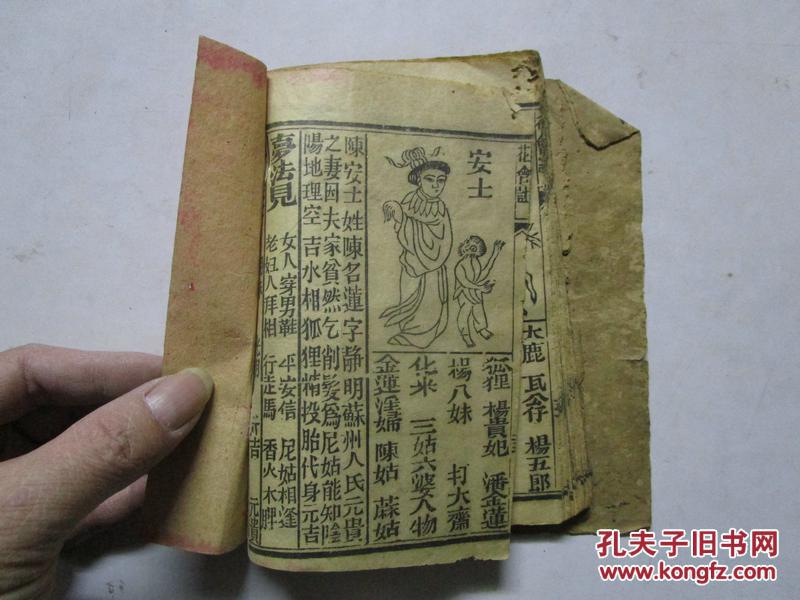 花會
大鹿 瓦谷 楊五郎
安士
狐狸 楊貴妃 潘金蓮
楊八妹 打大齋
化米 三姑六婆人物
金蓮淫婦 陳姑 蔴姑
陳安士姓陳名蓮字静明蘇州人氏元貴
之妻因夫家貧然乞削髮爲尼姑能知陰
陽地理空 吉水相狐狸精投胎代身元吉
夢法見
女人穿男鞋 平安信 尼姑相逢
老妇人拜相 行走馬 香火木牌
吉 元貴
孔夫子旧书网
www.kongfz.com